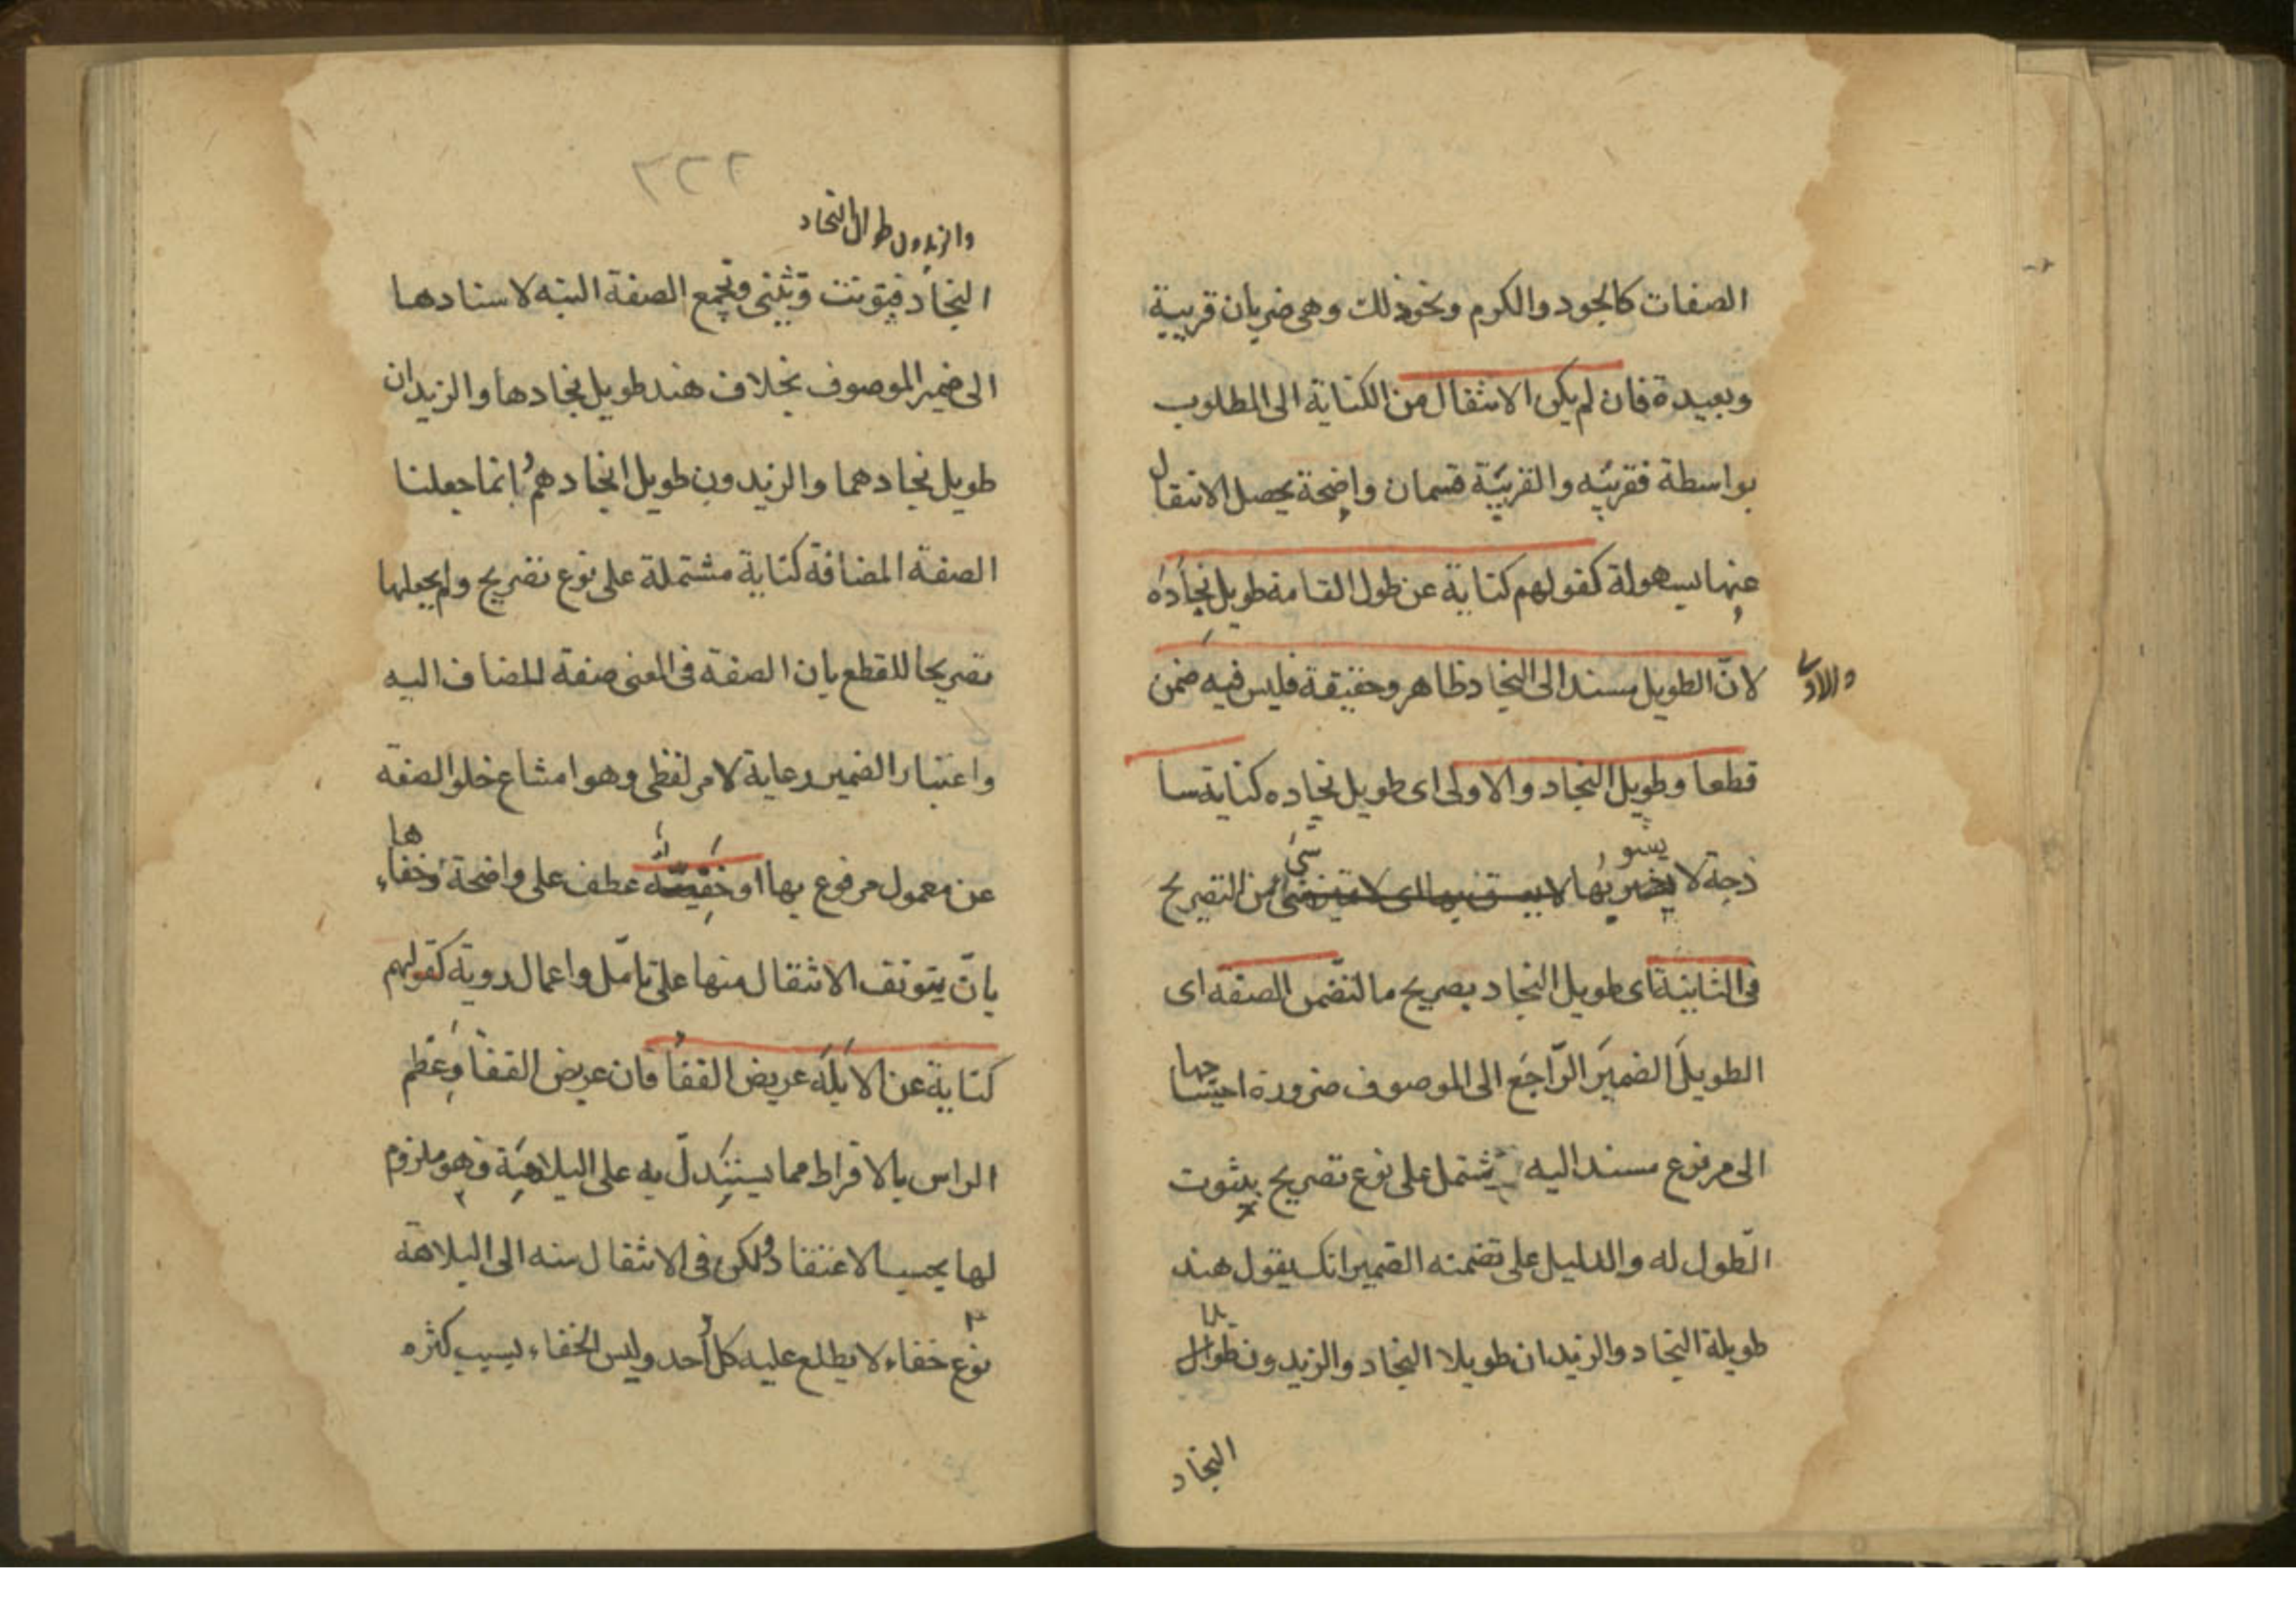 الصفات كالجود والكرم ونحو ذلك وهى ضربان قريبة
وبعيدة فان لم يكن الانتقال من الكناية الى المطلوب
بواسطة فقريبه والقريبة قسمان واضحة يحصل الانتقال
عنها بسهولة كقولهم كناية عن طول القامة طويل نجاده
لانّ الطويل مسند الى النجاد ظاهر وحقيقة فليس فيه ضمن
والاولى
قطعا وطويل النجاد والاولى اى طويل نجاده كناية سا
ذجة لا يشوبها شئ من التصريح
فى الثانية اى طويل النجاد بصريح ما لتضمن الصفه اى
الطويلَ الضميرَ الرّاجعَ الى الموصوف ضرورة احتياجها
الى مرفوع مسند اليه يشتمل على نوع تصريح بثبوت
الطّول له والدليل على تضمنه الضمير انك يقول هند
طويلة النجاد والزيدان طويلا النجاد والزيدون طوال
النجاد
٣٢٢
والزيدون طوال النجاد
النجاد فيؤنث وتثنى وتجمع الصفة البته لاسنادها
الى ضمير الموصوف بخلاف هند طويل نجادها والزيدان
طويل نجادهما والزيدون طويل انجادهم وانما جعلنا
الصفة المضافة كناية مشتملة على نوع تصريح ولم يجعلها
تصريحا للقطع بان الصفة فى المعنى صفة للمضاف اليه
واعتبار الضمير رعاية لامر لفظى وهو امشاع خلو الصفة
عن معمول مرفوع بها او خفيّة عطف على واضحة وخفاءها
بانّ يتوقف الانتقال منها على تامّل واعمال روية كقولهم
كناية عن الابله عريض القفا فان عريض القفا وعظم
الراس بالافراط مما يستدلّ به على البلاهة فهو ملزوم
لها بحسب الاعتقاد ولكن فى الانتقال منه الى البلاهة
نوع خفاء لا يطلع عليه كل أحد وليس الخفاء بسبب كثره